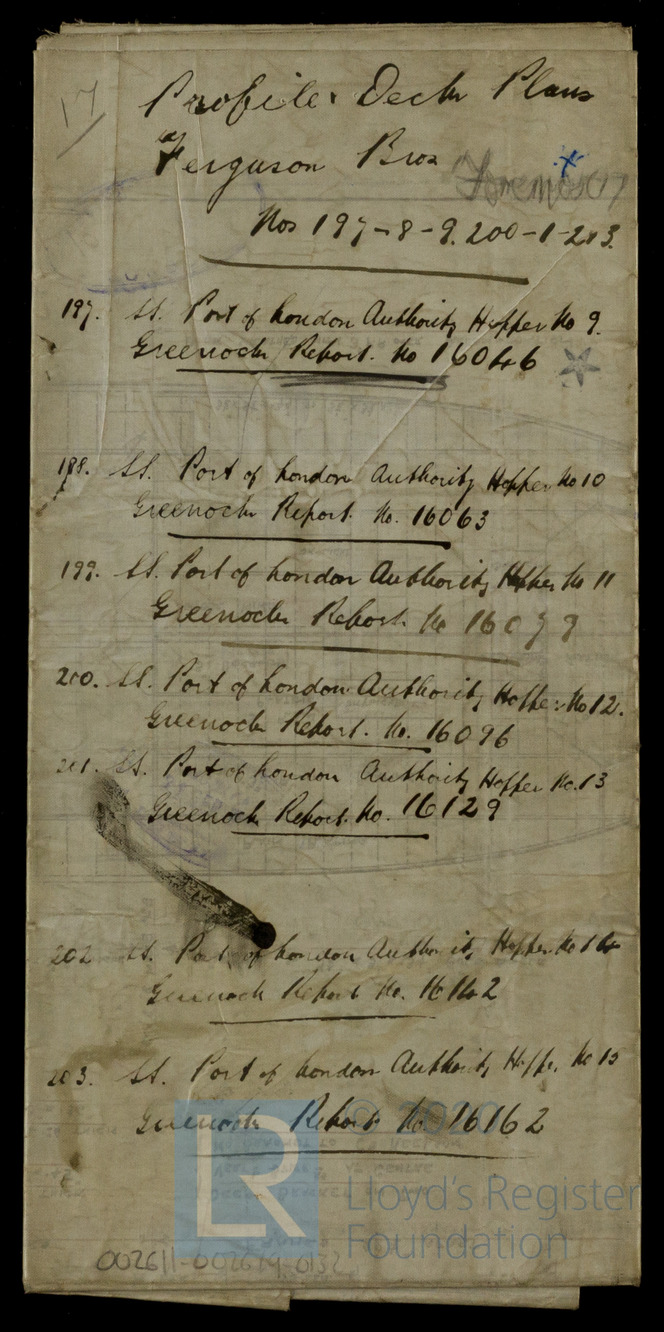 17
Profile & Deck Plans
Ferguson Bros
Foremost 17
Nos 197-8-9. 200-1-2&3.
197. SS. Port of London Authority Hopper No 9.
Greenock Report. No 16046
198. SS. Port of London Authority Hopper No 10
Greenock Report. No. 16063
199. SS. Port of London Authority Hopper No 11
Greenock Report. No 16079
200. SS. Port of London Authority Hopper No 12.
Greenock Report. No. 16096
201. SS. Port of London Authority Hopper No. 13
Greenock Report. No. 16129
202 SS. Port of London Authority Hopper No 14
Greenock Report No. 16142
203. SS. Port of London Authority Hopper No 15
Greenock Report No. 16162
© 2020
LR Lloyd's Register
Foundation
002611-002614-0132